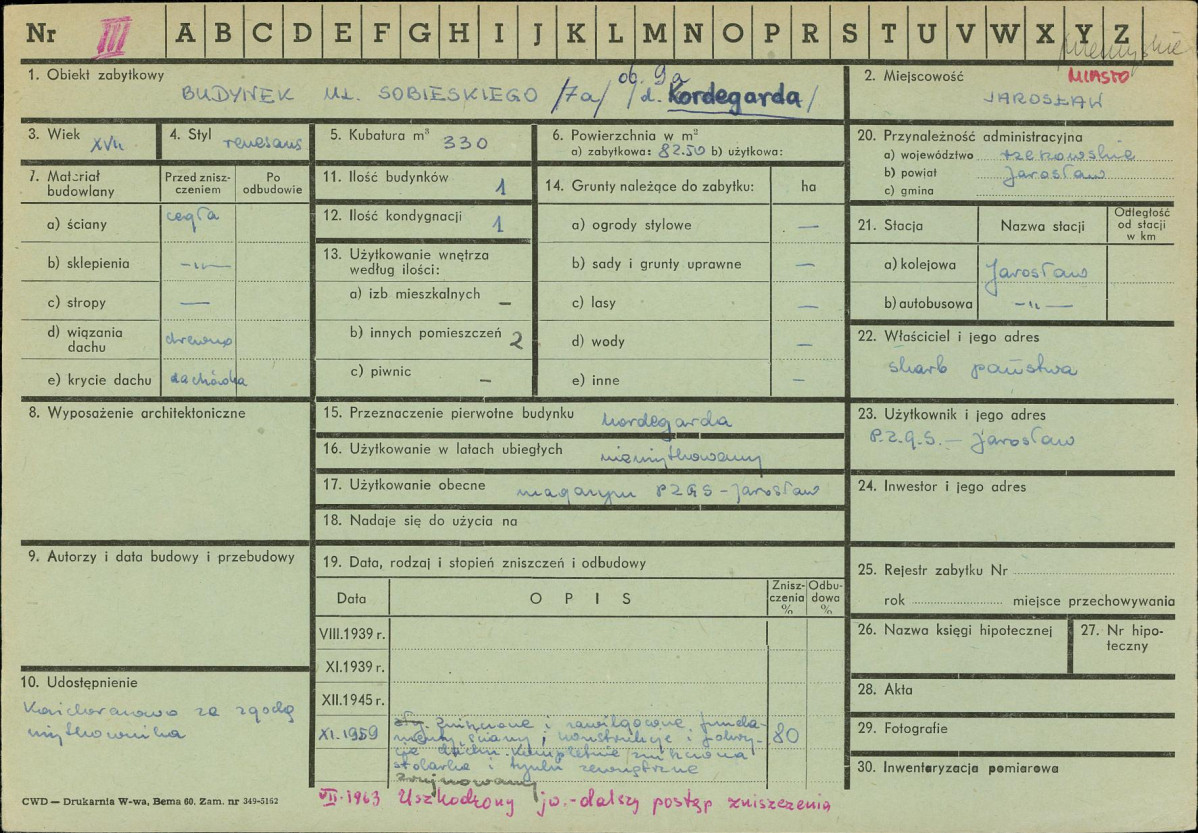 Nr III A B C D E F G H I J K L M N O P R S T U V W X Y Z
przemyskie
1. Obiekt zabytkowy
BUDYNEK UL. SOBIESKIEGO /7a/ ob. 9a /d. Kordegarda/
2. Miejscowość MIASTO
JAROSŁAW
3. Wiek XVII
4. Styl renesans
5. Kubatura m³ 330
6. Powierzchnia w m²
a) zabytkowa: 82.50 b) użytkowa:
20. Przynależność administracyjna
a) województwo rzeszowskie
b) powiat Jarosław
c) gmina
7. Materiał budowlany
Przed zniszczeniem
Po odbudowie
a) ściany cegła
b) sklepienia —"—
c) stropy —
d) wiązania dachu drewno
e) krycie dachu dachówka
11. Ilość budynków 1
12. Ilość kondygnacji 1
13. Użytkowanie wnętrza
według ilości:
a) izb mieszkalnych –
b) innych pomieszczeń 2
c) piwnic –
14. Grunty należące do zabytku: ha
a) ogrody stylowe —
b) sady i grunty uprawne —
c) lasy —
d) wody —
e) inne —
21. Stacja
Nazwa stacji
Odległość
od stacji
w km
a) kolejowa Jarosław
b) autobusowa —"—
22. Właściciel i jego adres
skarb państwa
8. Wyposażenie architektoniczne
15. Przeznaczenie pierwotne budynku kordegarda
16. Użytkowanie w latach ubiegłych nieużytkowany
17. Użytkowanie obecne magazyn PZGS – Jarosław
18. Nadaje się do użycia na
23. Użytkownik i jego adres
P.Z.G.S. – Jarosław
24. Inwestor i jego adres
9. Autorzy i data budowy i przebudowy
19. Data, rodzaj i stopień zniszczeń i odbudowy
Data
O P I S
Zniszczenia %
Odbudowa %
VIII.1939 r.
XI.1939 r.
XII.1945 r.
XI.1959
Zniszczone i zawilgocone funda-
menty, ściany, konstrukcje i pokry-
cie dachu. Kompletnie zniszczona
stolarka i tynki zewnętrzne
zrujnowany
80
VII.1963 Uszkodzony jw.-dalszy postęp zniszczenia
25. Rejestr zabytku Nr
rok miejsce przechowywania
26. Nazwa księgi hipotecznej
27. Nr hipo-
teczny
10. Udostępnienie
za zgodą
użytkownika
28. Akta
29. Fotografie
30. Inwentaryzacja pomiarowa
CWD — Drukarnia W-wa, Bema 60. Zam. nr 349-5162